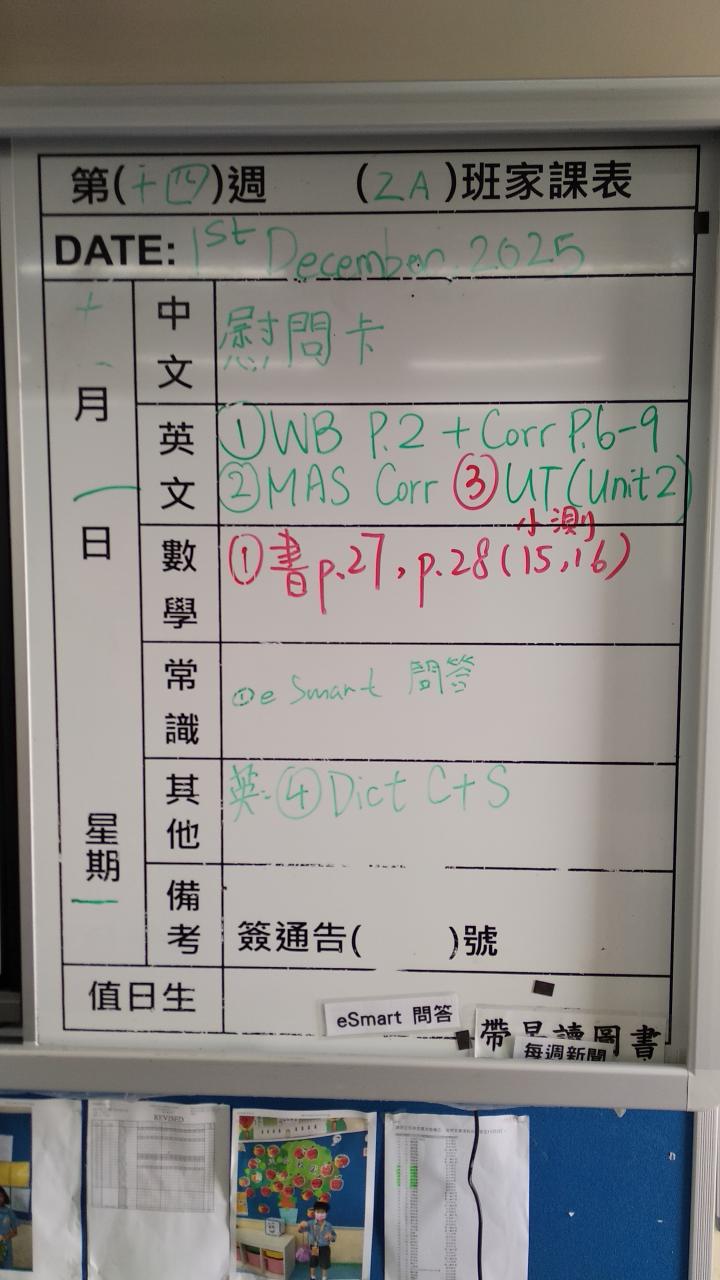 第(十四)週 (2A)班家課表
DATE: 1st December. 2025
十
月
一
日
星期
一
中文
慰問卡
英文
①WB P.2 + Corr P.6-9
②MAS Corr ③UT(Unit2)
小測
數學
①書p.27, p.28(15,16)
常識
①eSmart 問答
其他
英.④Dict C+S
備考
簽通告( )號
值日生
eSmart 問答
帶早讀圖書
每週新聞
REVISED